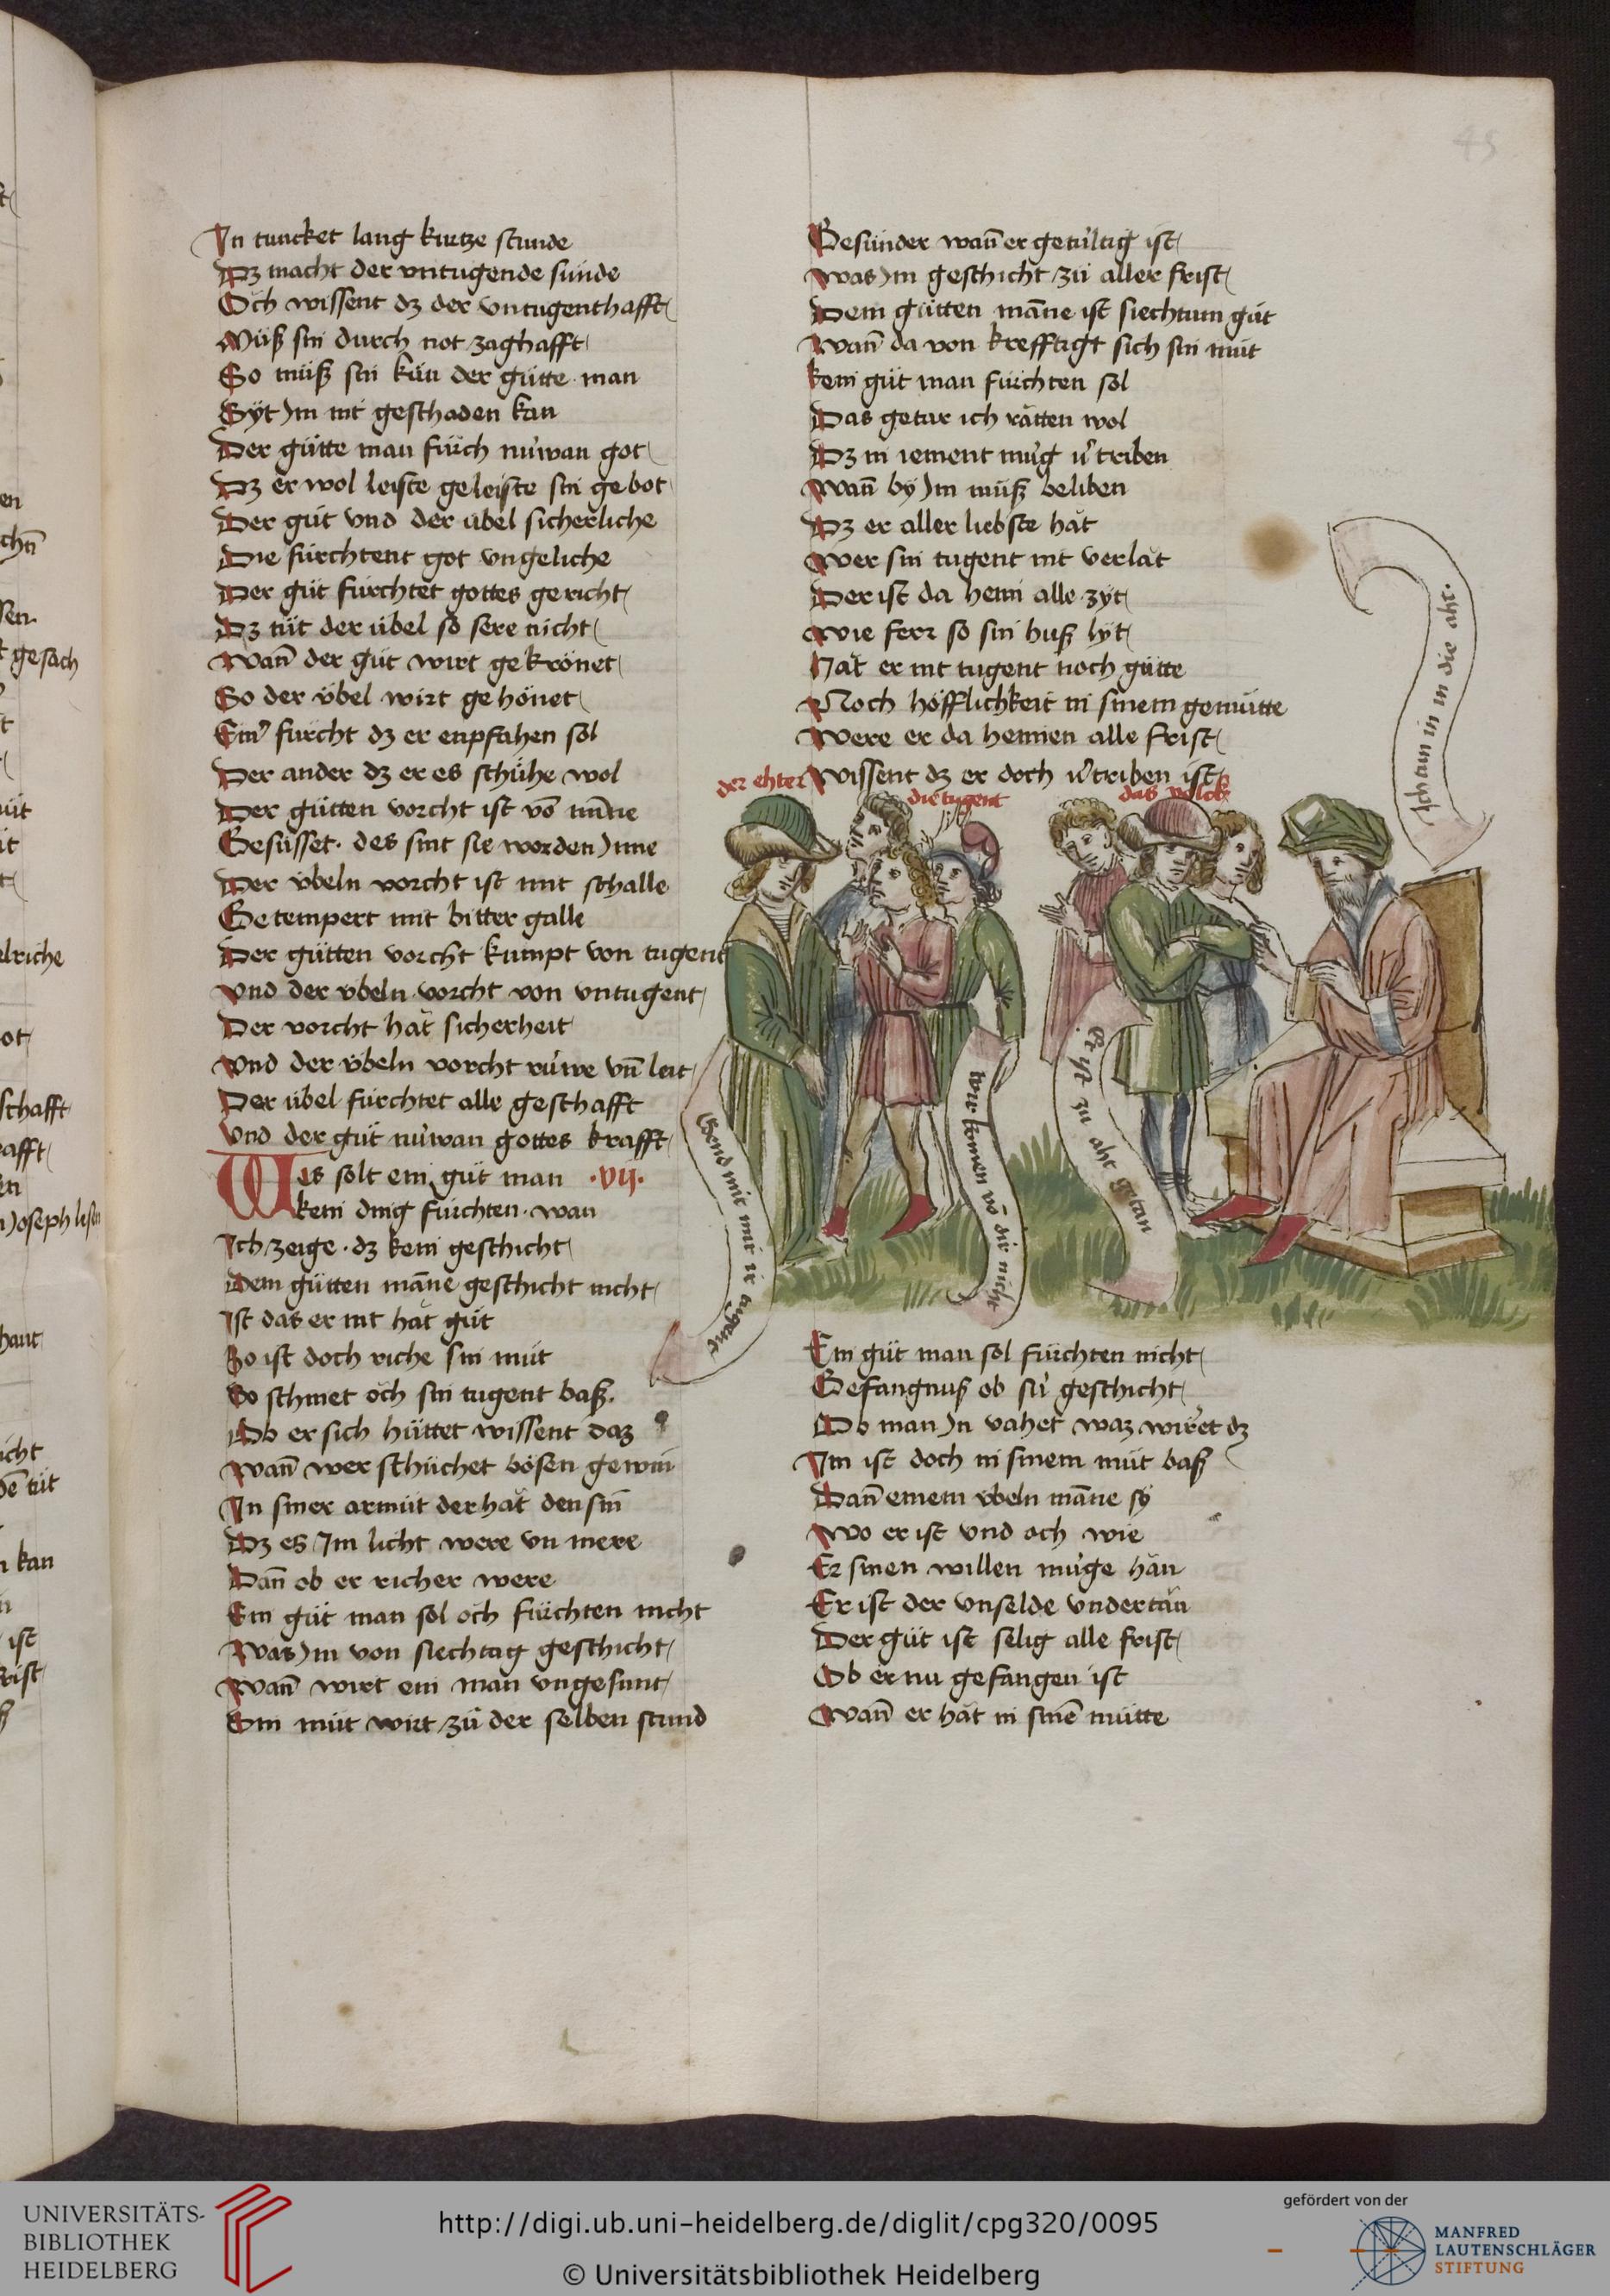 45
In tuncket lang kurtze stunde
Dz macht der vntugende sünde
Och wissent dz der vntugenthafft
Müß sin durch not zaghafft
So müß sin kün der gütte man
Syt Im nit geschaden kan
Der gütte man fürch nuwan got
Dz er wol leiste geleiste sin gebot
Der güt vnd der übel sicherliche
Die fürchtent got vngeliche
Der güt fürchtet gottes gericht
Dz tüt der übel so sere nicht
Wañ der güt wirt gekrönet
So der übel wirt gehönet
Einr furcht dz er enpfahen sol
Der ander dz er es schühe wol
Der gütten vorcht ist võ mĩne
Gesüsset. des sint sie worden Inne
Der übeln vorcht ist mit schalle
Getempert mit bitter galle
Der gütten vorcht kumpt von tugent
Vnd der übeln vorcht von vntugent
Der vorcht hät sicherheit
Vnd der übeln vorcht rüwe vñ leit
Der übel fürchtet alle geschafft
Vnd der güt nuwan gottes krafft
Was solt ein güt man ·vij·
kein ding fürchten. wan
Ich zeige. dz kein geschicht
Dem gütten mãne geschicht nicht
Ist das er nit hät güt
So ist doch riche sin müt
So schinet och sin tugent baß.
Ob er sich hüttet wissent daz
Wañ wer schüchet bösen gewin
In siner armüt der hät den siñ
Dz es Im licht were vn mere
Dañ ob er richer were
Ein güt man sol och fürchten nicht
Was Im von siechtag geschicht
Wañ wirt ein man vngesunt
Sin müt wirt zü der selben stund
Gesünder wañ er gedultig ist
Was Im geschicht zü aller frist
Dem gütten mãne ist siechtum güt
Wañ da von krefftigt sich sin müt
kein güt man fürchten sol
Das getar ich rätten wol
Dz in iement mug vertriben
Wañ by Im müß beliben
Dz er aller liebste hät
Wer sin tugent nit verlät
Der ist da heim alle zyt
Wie ferr so sin huß lyt
Hät er nit tugent noch gütte
Noch höfflichkeit in sinem gemütte
Were er da heimen alle frist
Wissent dz er doch vertriben ist
der ehter
die tugent
das volck
Ich tun in in die aht.
Gend mit mir ir tugent
wir komen võ dir nicht
Er ist zu aht getan
Ein güt man sol fürchten nicht
Gefangnuß ob sü geschicht
Ob man In vahet waz wirret dz
Im ist doch in sinem müt baß
Dañ einem übeln mãne sy
Wo er ist vnd och wie
Er sinen willen müge hän
Er ist der vnselde vndertän
Der güt ist selig alle frist
Ob er nu gefangen ist
Wañ er hät in sinẽ mütte
UNIVERSITÄTS-
BIBLIOTHEK
HEIDELBERG
http://digi.ub.uni-heidelberg.de/diglit/cpg320/0095
© Universitätsbibliothek Heidelberg
gefördert von der
MANFRED
LAUTENSCHLÄGER
STIFTUNG